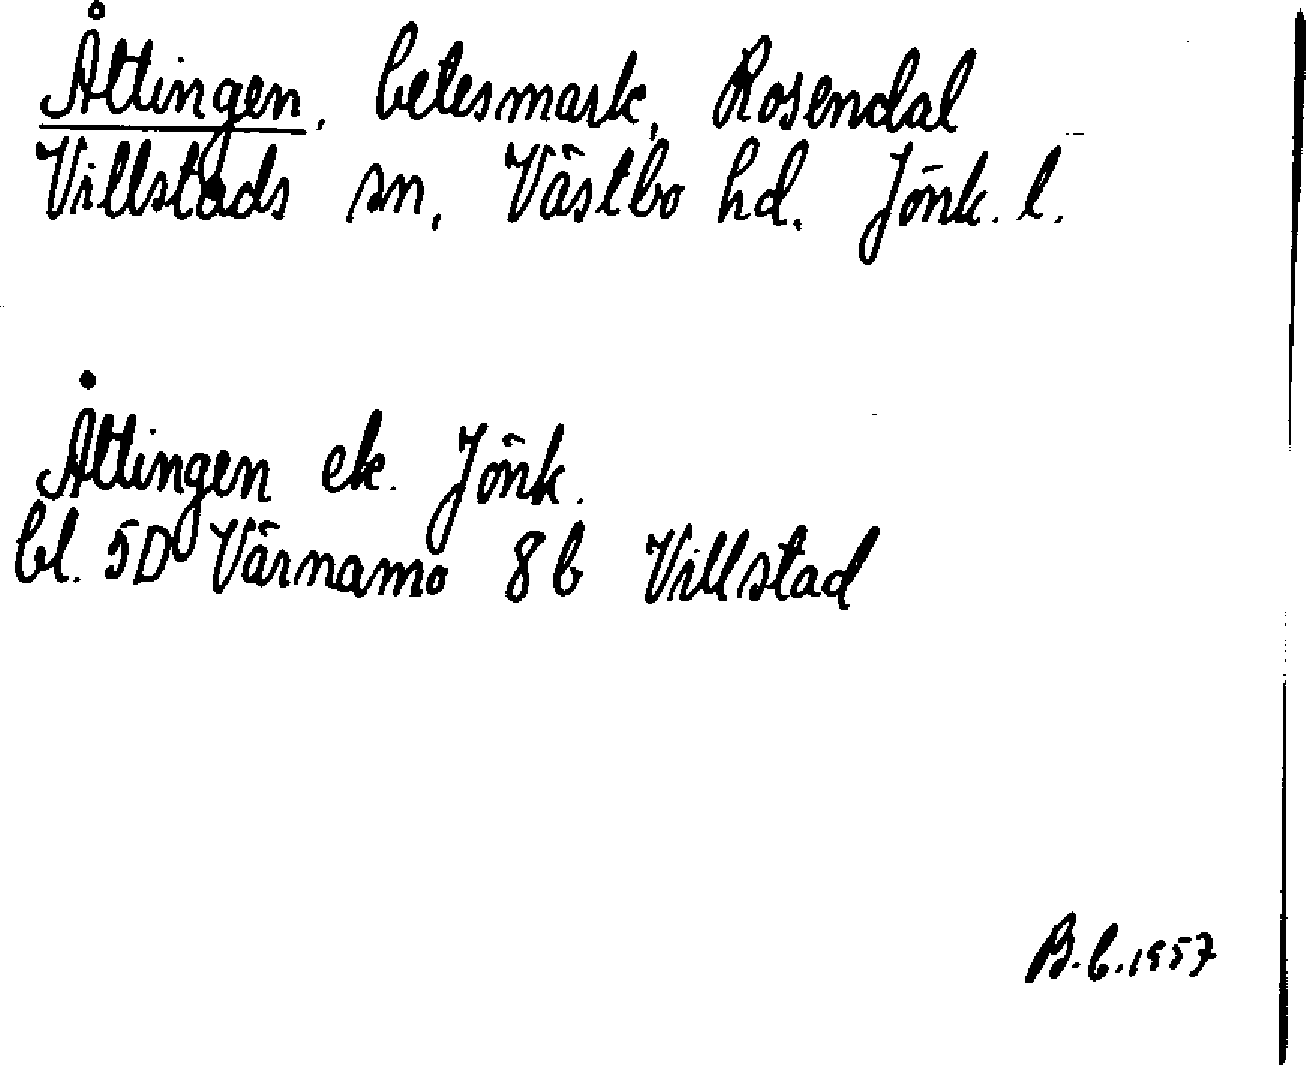 Åttingen, betesmark, Rosendal
Villstads sn, Västbo hd. Jönk. l.
Åttingen ek. Jönk.
bl. 5D Värnamo 8b Villstad
B.b.1957